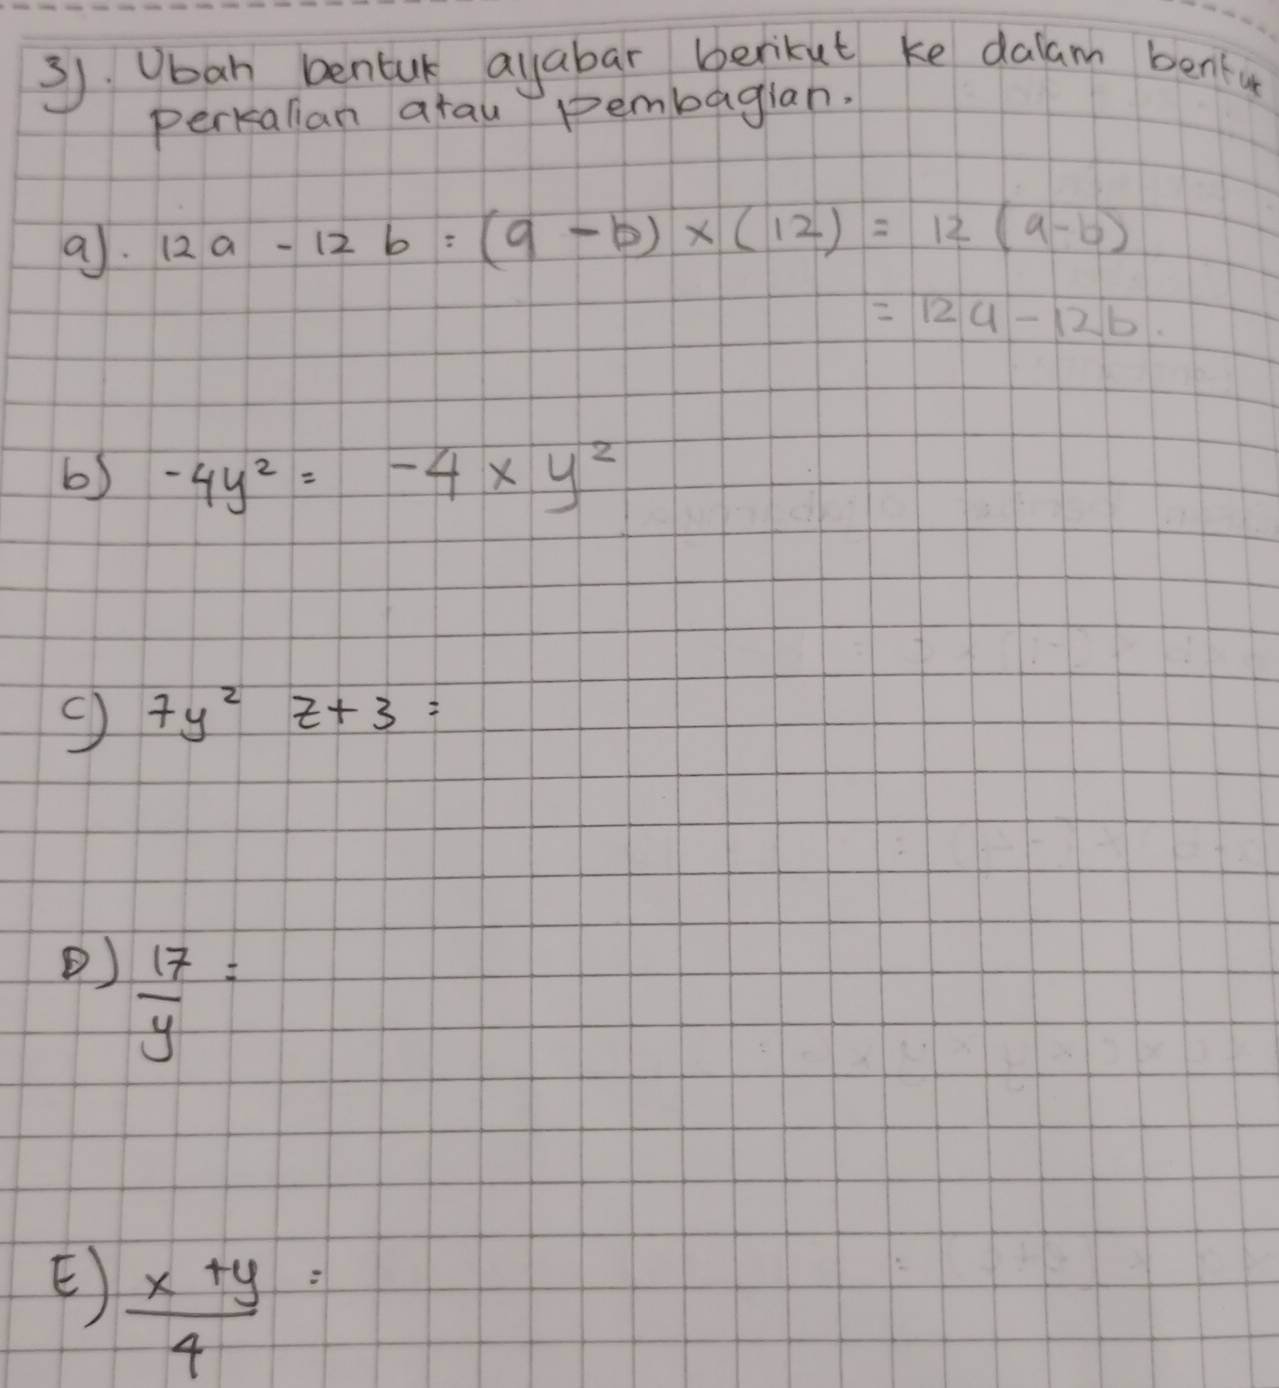 3). Ubah bentuk aljabar berikut ke dalam bentuk
perkalian atau pembagian.
a). 12a - 12 b = (a - b) × (12) = 12 (a-b)
= 12a - 12b.
b) -4y² = -4 × y²
c) 7y² z + 3 =
D) 17/y =
E) x + y / 4 =